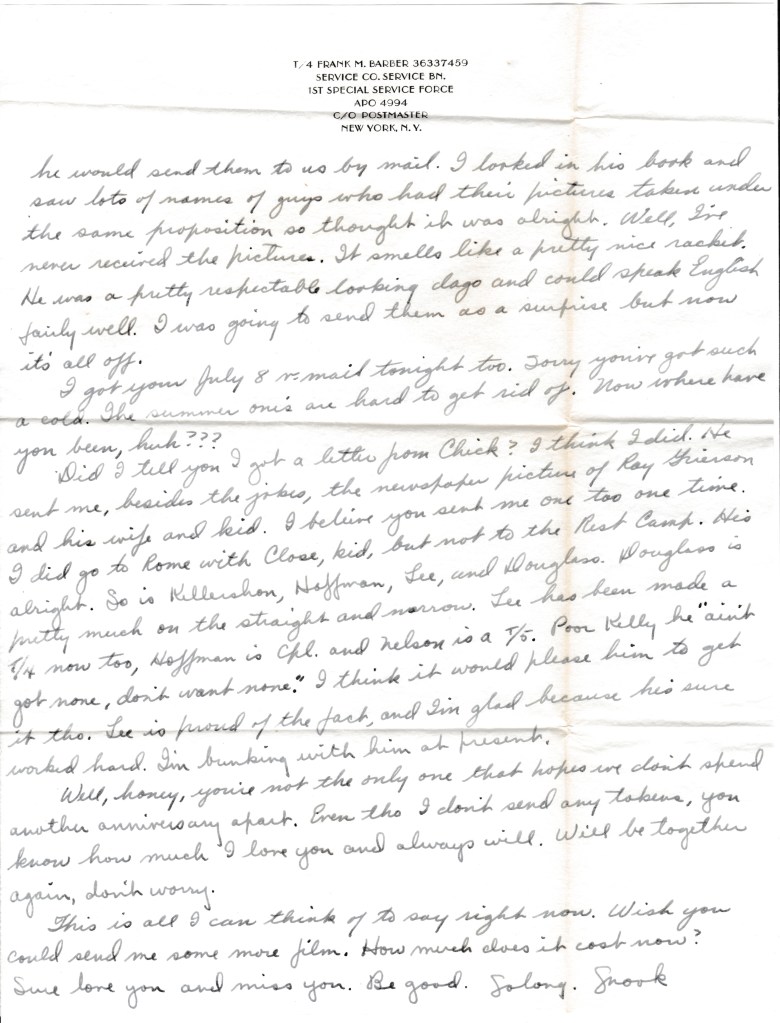 T/4 FRANK M. BARBER 36337459
SERVICE CO. SERVICE BN.
1ST SPECIAL SERVICE FORCE
APO 4994
C/O POSTMASTER
NEW YORK, N. Y.
he would send them to us by mail. I looked in his book and
saw lots of names of guys who had their pictures taken under
the same proposition so thought it was alright. Well, I've
never received the pictures. It smells like a pretty nice racket.
He was a pretty respectable looking dago and could speak English
fairly well. I was going to send them as a surprise but now
it's all off.
I got your July 8 v-mail tonight too. Sorry you've got such
a cold. The summer one's are hard to get rid of. Now where have
you been, huh???
Did I tell you I got a letter from Chick? I think I did. He
sent me, besides the jokes, the newspaper picture of Ray Grierson
and his wife and kid. I beleive you sent me one too one time.
I did go to Rome with Close, kid, but not to the Rest Camp. His
alright. So is Killershon, Hoffman, Lee, and Douglass. Douglass is
pretty much on the straight and narrow. Lee has been made a
T/4 now too, Hoffman is Cpl. and Nelson is a T/5. Poor Kelly he "ain't
got none, don't want none." I think it would please him to get
it tho. Lee is proud of the fact, and I'm glad because his sure
worked hard. I'm bunking with him at present.
Well, honey, you're not the only one that hopes we don't spend
another anniversary apart. Even tho I don't send any tokens, you
know how much I love you and always will. Will be together
again, don't worry.
This is all I can think of to say right now. Wish you
could send me some more film. How much does it cost now?
Sure love you and miss you. Be good. Solong. Snook